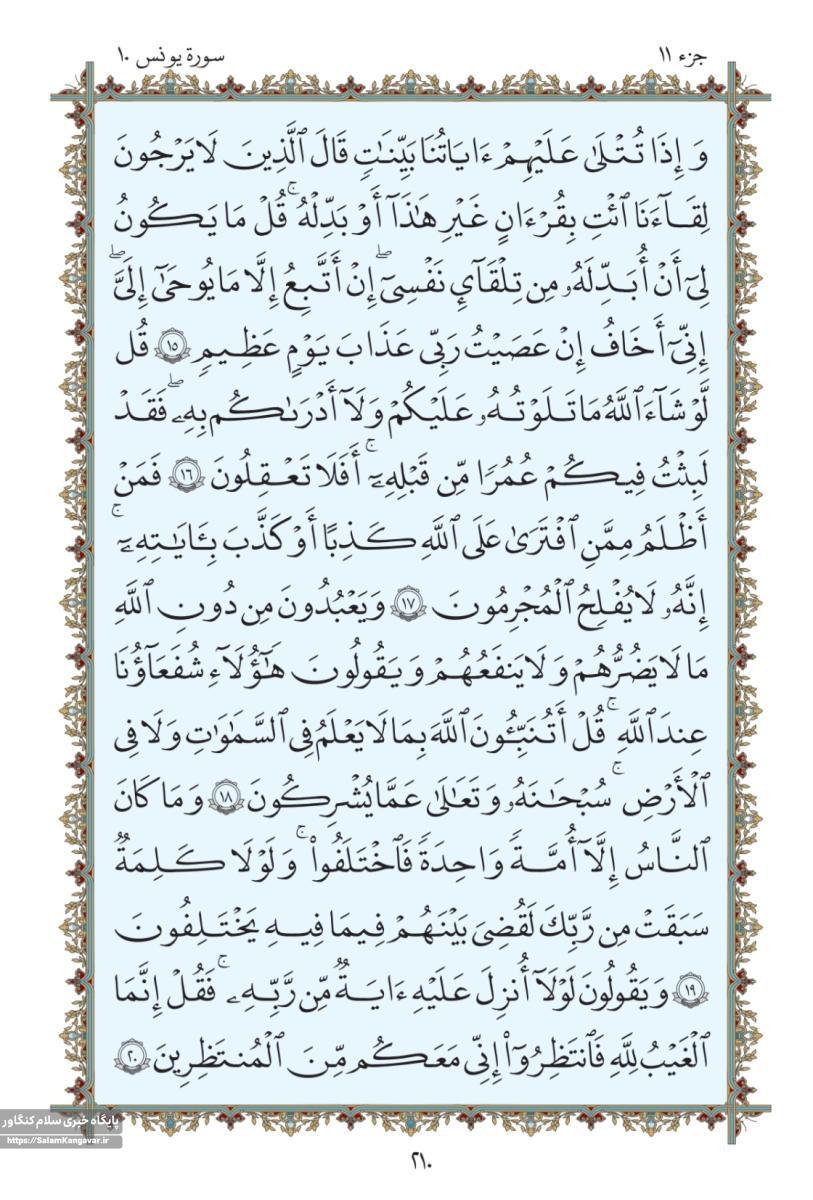 جزء ۱۱
سورة یونس ۱۰
وَ إِذَا تُتْلَىٰ عَلَيْهِمْ ءَايَاتُنَا بَيِّنَٰتٍ قَالَ ٱلَّذِينَ لَا يَرْجُونَ
لِقَآءَنَا ٱئْتِ بِقُرْءَانٍ غَيْرِ هَٰذَآ أَوْ بَدِّلْهُ ۚ قُلْ مَا يَكُونُ
لِىٓ أَنْ أُبَدِّلَهُۥ مِن تِلْقَآئِ نَفْسِىٓ ۖ إِنْ أَتَّبِعُ إِلَّا مَا يُوحَىٰٓ إِلَىَّ ۖ
إِنِّىٓ أَخَافُ إِنْ عَصَيْتُ رَبِّى عَذَابَ يَوْمٍ عَظِيمٍ ۱۵ قُل
لَّوْ شَآءَ ٱللَّهُ مَا تَلَوْتُهُۥ عَلَيْكُمْ وَلَآ أَدْرَىٰكُم بِهِۦ ۖ فَقَدْ
لَبِثْتُ فِيكُمْ عُمُرًا مِّن قَبْلِهِۦٓ ۚ أَفَلَا تَعْقِلُونَ ۱۶ فَمَنْ
أَظْلَمُ مِمَّنِ ٱفْتَرَىٰ عَلَى ٱللَّهِ كَذِبًا أَوْ كَذَّبَ بِـَٔايَاتِهِۦٓ ۚ
إِنَّهُۥ لَا يُفْلِحُ ٱلْمُجْرِمُونَ ۱۷ وَيَعْبُدُونَ مِن دُونِ ٱللَّهِ
مَا لَا يَضُرُّهُمْ وَ لَا يَنفَعُهُمْ وَ يَقُولُونَ هَٰٓؤُلَآءِ شُفَعَآؤُنَا
عِندَ ٱللَّهِ ۚ قُلْ أَتُنَبِّـُٔونَ ٱللَّهَ بِمَا لَا يَعْلَمُ فِى ٱلسَّمَٰوَٰتِ وَ لَا فِى
ٱلْأَرْضِ ۚ سُبْحَٰنَهُۥ وَ تَعَالَىٰ عَمَّا يُشْرِكُونَ ۱۸ وَ مَا كَانَ
ٱلنَّاسُ إِلَّآ أُمَّةً وَاحِدَةً فَٱخْتَلَفُوا۟ ۚ وَ لَوْلَا كَلِمَةٌ
سَبَقَتْ مِن رَّبِّكَ لَقُضِىَ بَيْنَهُمْ فِيمَا فِيهِ يَخْتَلِفُونَ
۱۹ وَ يَقُولُونَ لَوْلَآ أُنزِلَ عَلَيْهِ ءَايَةٌ مِّن رَّبِّهِۦ ۚ فَقُلْ إِنَّمَا
ٱلْغَيْبُ لِلَّهِ فَٱنتَظِرُوٓا۟ إِنِّى مَعَكُم مِّنَ ٱلْمُنتَظِرِينَ ۲۰
پایگاه خبری سلام کنگاور
https://SalamKangavar.ir
۲۱۰